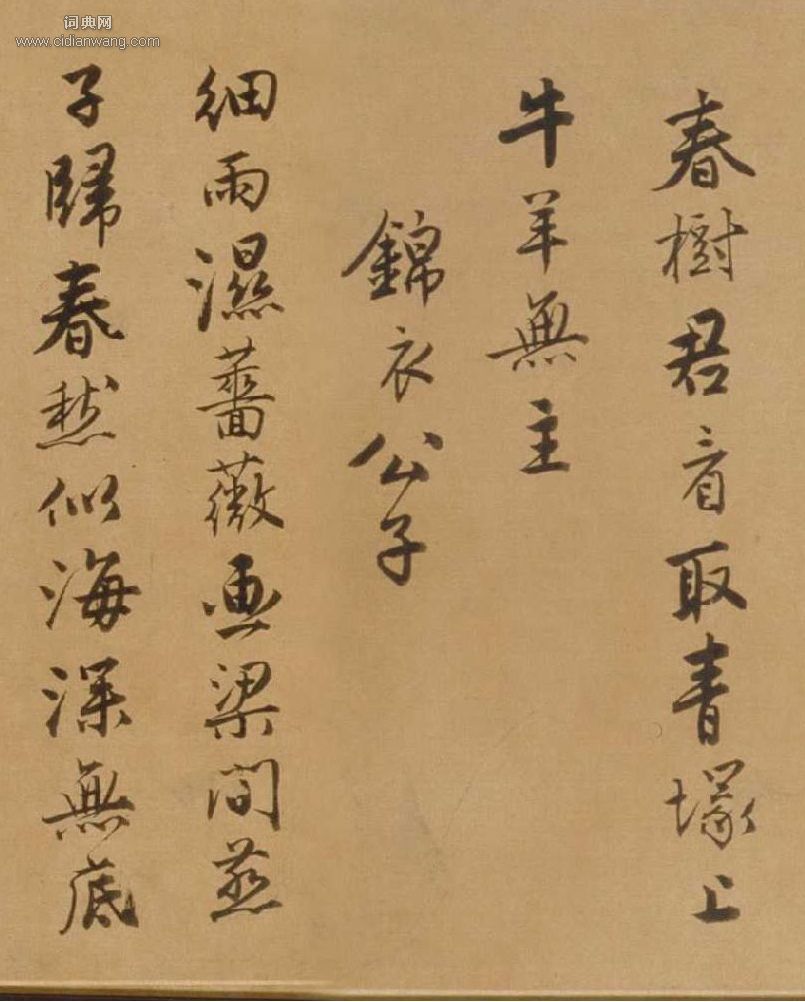 词典网
www.cidianwang.com
春樹君看取青塚上
牛羊無主
錦衣公子
細雨濕薔薇画梁間燕
子歸春愁似海深無底